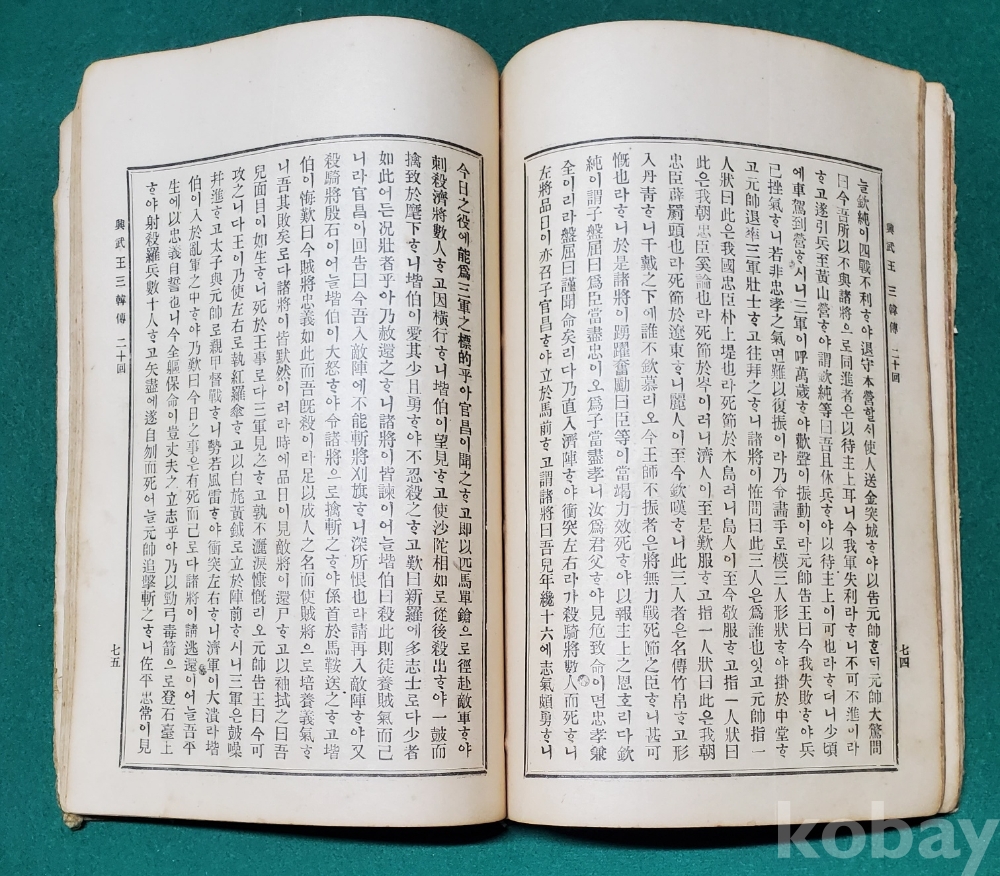 興武王三韓傳 二十回
七四
늘欽純이四戰不利ᄒᆞ야退守本營ᄒᆞᆯ시使人送金突城ᄒᆞ야以告元帥ᄒᆞᆫᄃᆡ元帥大驚問
曰今吾所以不與諸將으로同進者은以待主上耳니今我軍失利라ᄒᆞ니不可不進이라
ᄒᆞ고遂引兵至黃山營ᄒᆞ야謂欽純等曰吾且休兵ᄒᆞ야以待主上이可也라ᄒᆞ더니少頃
에車駕到營ᄒᆞ시니三軍이呼萬歲ᄒᆞ야歡聲이振動이라元帥告王曰今我失敗ᄒᆞ야兵
已挫氣ᄒᆞ니若非忠孝之氣면難以復振이라乃令畵手로模三人形狀ᄒᆞ야掛於中堂ᄒᆞ
고元帥退率三軍壯士ᄒᆞ고往拜之ᄒᆞ니諸將이恠問曰此三人은爲誰也잇고元帥指一
人狀曰此은我國忠臣朴上堤也라死節於木島러니島人이至今敬服ᄒᆞ고指一人狀曰
此은我朝忠臣奚論也라死節於岑이러니濟人이至是歎服ᄒᆞ고指一人狀曰此은我朝
忠臣薛罽頭也라死節於遼東ᄒᆞ니麗人이至今欽嘆ᄒᆞ니此三人者은名傳竹帛ᄒᆞ고形
入丹靑ᄒᆞ니千戴之下에誰不欽慕리오今王師不振者은將無力戰死節之臣ᄒᆞ니甚可
慨也라ᄒᆞ니於是諸將이踴躍奮勵曰臣等이當竭力效死ᄒᆞ야以報主上之恩호리다欽
純이謂子盤屈曰爲臣當盡忠이오爲子當盡孝니汝爲君父ᄒᆞ야見危致命이면忠孝兼
全이리라盤屈曰謹聞命矣리다乃直入濟陣ᄒᆞ야衝突左右라가殺騎將數人而死ᄒᆞ니
左將品日이亦召子官昌ᄒᆞ야立於馬前ᄒᆞ고謂諸將曰吾兒年纔十六에志氣頗勇ᄒᆞ니
今日之役에能爲三軍之標的乎아官昌이聞之ᄒᆞ고即以匹馬單鎗으로徑赴敵軍ᄒᆞ야
刺殺濟將數人ᄒᆞ고因橫行ᄒᆞ니堦伯이望見ᄒᆞ고使沙陀相如로從後殺出ᄒᆞ야一鼓而
擒致於麾下ᄒᆞ니堦伯이愛其少且勇ᄒᆞ야不忍殺之ᄒᆞ고歎曰新羅에多志士로다少者
如此어든况壯者乎아乃赦還之ᄒᆞ니諸將이皆諫이어ᄂᆞᆯ堦伯曰殺此則徒養賊氣而已
니라官昌이回告曰今吾入敵陣에不能斬將刈旗ᄒᆞ니深所恨也라請再入敵陣ᄒᆞ야又
殺騎將殷石이어ᄂᆞᆯ堦伯이大怒ᄒᆞ야令諸將으로擒斬之ᄒᆞ야係首於馬鞍送之ᄒᆞ고堦
伯이悔歎曰今賊將忠義如此而吾旣殺이라足以成人之名而使賊將으로培養義氣ᄒᆞ
니吾其敗矣로다諸將이皆默然이러라時에品日이見敵將이還尸ᄒᆞ고以袖拭之曰吾
兒面目이如生ᄒᆞ니死於王事로다三軍見之ᄒᆞ고孰不灑淚慷慨리오元帥告王曰今可
攻之니다王이乃使左右로執紅羅傘ᄒᆞ고以白旄黃鉞로立於陣前ᄒᆞ시니三軍은鼓噪
幷進ᄒᆞ고太子與元帥로親甲督戰ᄒᆞ니勢若風雷ᄒᆞ야衝突左右ᄒᆞ니濟軍이大潰라堦
伯이入於亂軍之中ᄒᆞ야乃歎曰今日之事은有死而已로다諸將이請逃還이어ᄂᆞᆯ吾平
生에以忠義自誓也니今全軀保命이豈丈夫之立志乎아乃以勁弓毒箭으로登石臺上
ᄒᆞ야射殺羅兵數十人ᄒᆞ고矢盡에遂自刎而死어ᄂᆞᆯ元帥追擊斬之ᄒᆞ니佐平忠常이見
興武王三韓傳 二十回
七五
kobay